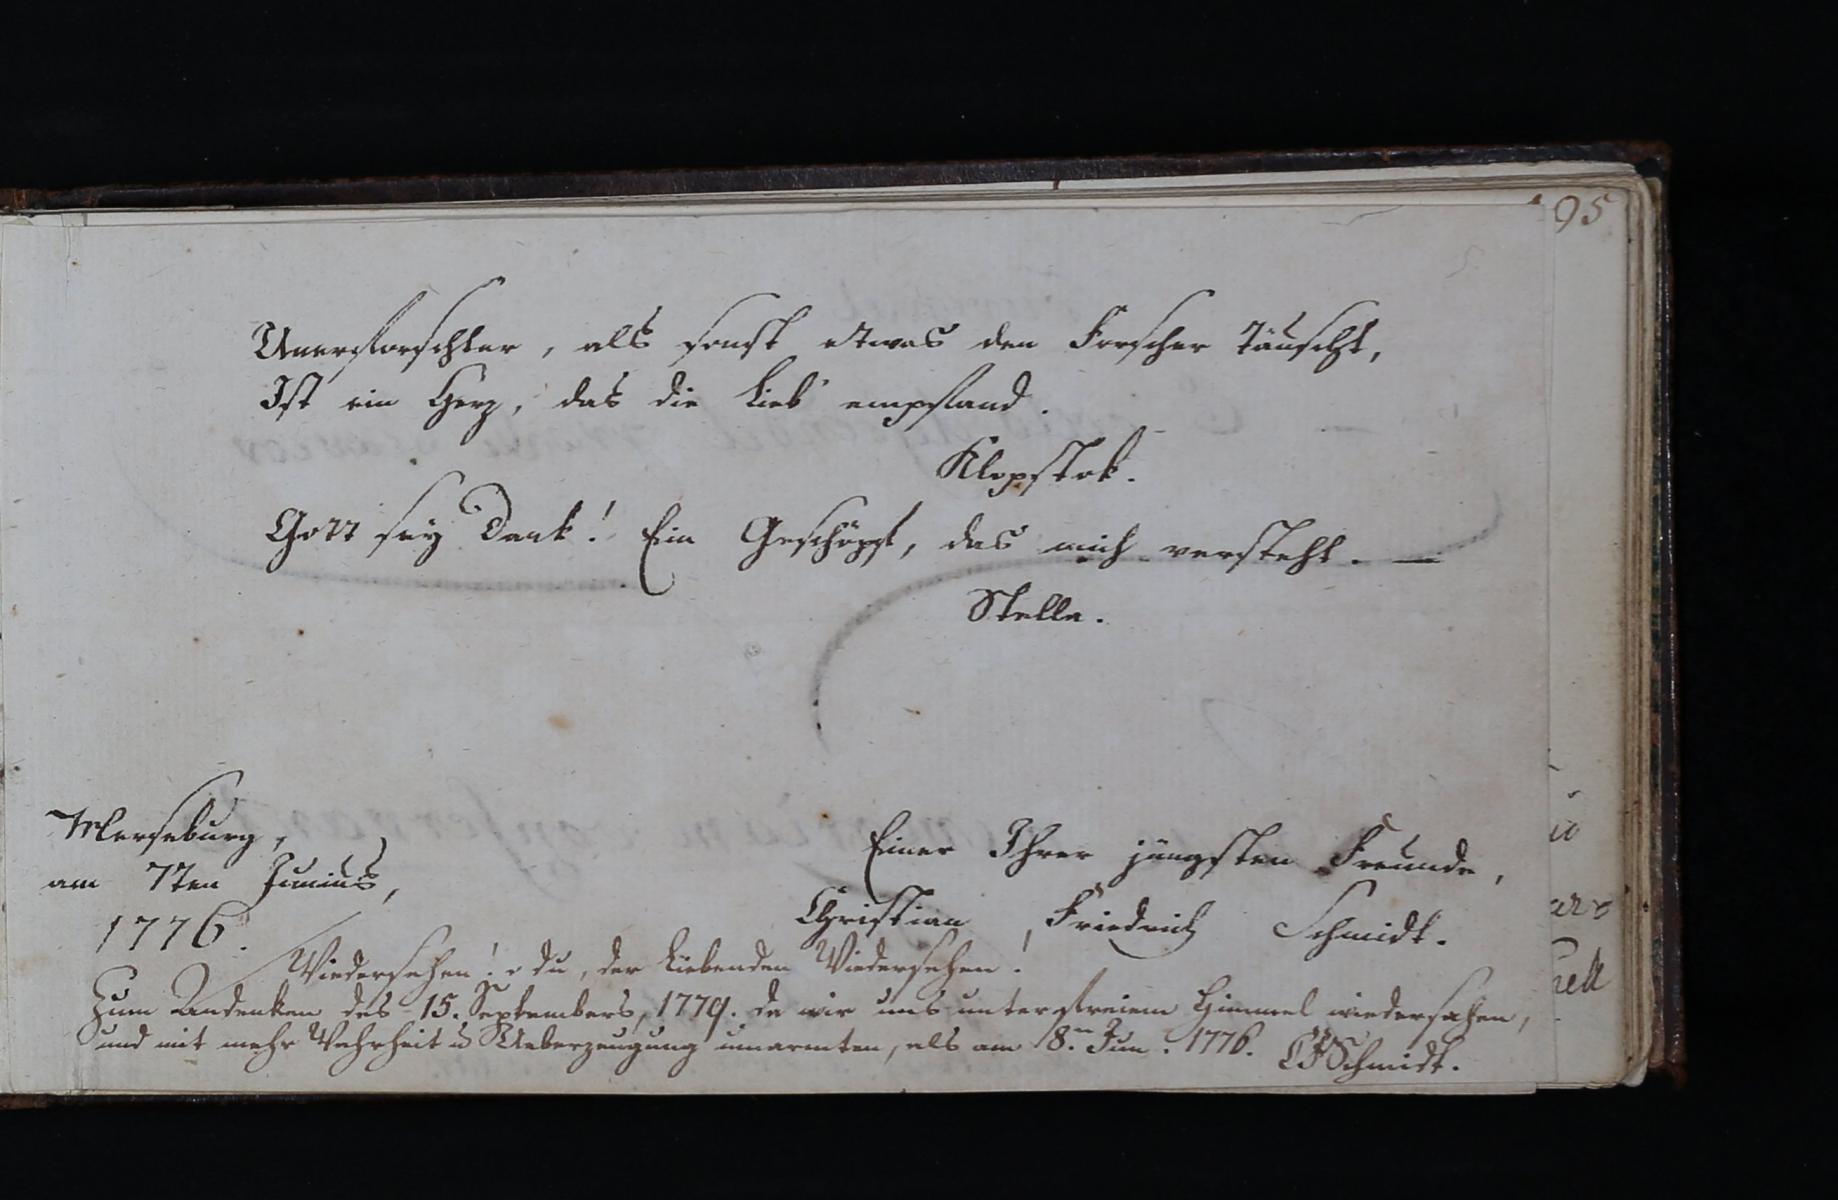 95
Unerforschter, als sonst etwas den Forscher täuscht,
Ist ein Herz, das die Lieb' empfand.
Klopstok.
Gott sey Dank! Ein Geschöpf, das mich versteht. —
Stella.
Merseburg,
am 7ten Junius,
1776.
Einer Ihrer jüngsten Freunde,
Christian Friedrich Schmidt.
Wiedersehen! o du, der Liebenden Wiedersehen!
Zum Andenken des 15. Septembers, 1779. da wir uns unter freiem Himmel wiedersahen,
und mit mehr Wahrheit u Ueberzeugung umarmten, als am 8.n Jun. 1776. CFSchmidt.